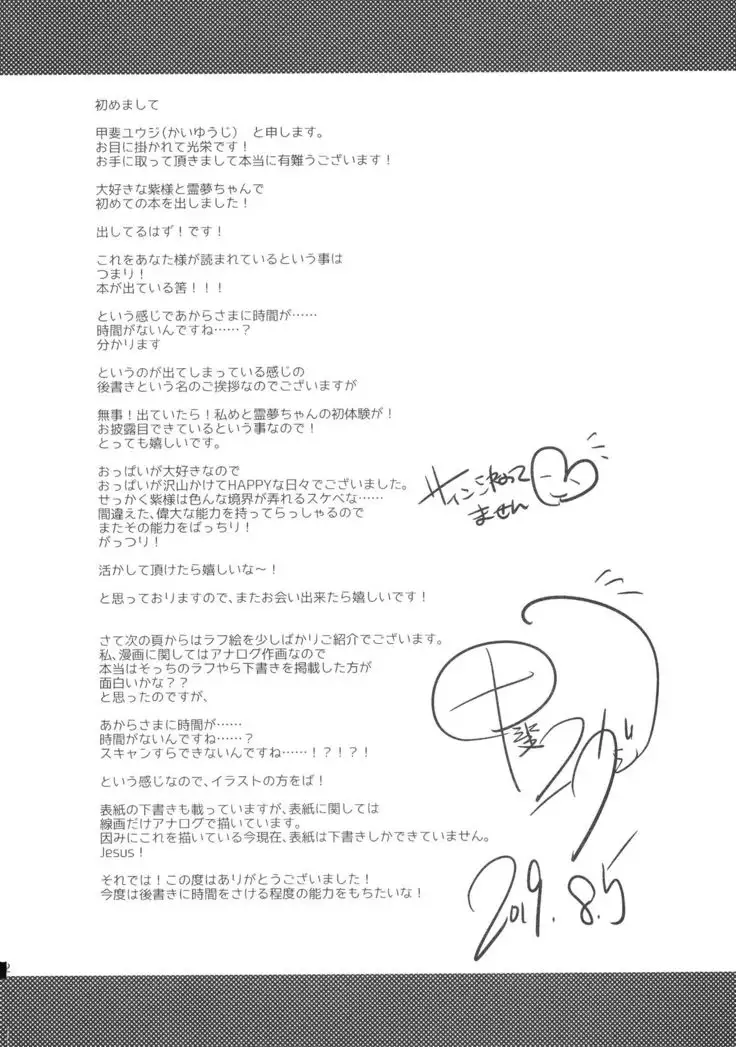 初めまして
甲斐ユウジ(かいゆうじ)　と申します。
お目に掛かれて光栄です!
お手に取って頂きまして本当に有難うございます!
大好きな紫様と霊夢ちゃんで
初めての本を出しました!
出してるはず!です!
これをあなた様が読まれているという事は
つまり!
本が出ている筈!!!
という感じであからさまに時間が……
時間がないんですね……?
分かります
というのが出てしまっている感じの
後書きという名のご挨拶なのでございますが
無事!出ていたら!私めと霊夢ちゃんの初体験が!
お披露目できているという事なので!
とっても嬉しいです。
おっぱいが大好きなので
おっぱいが沢山かけてHAPPYな日々でございました。
せっかく紫様は色んな境界が弄れるスケベな……
間違えた、偉大な能力を持ってらっしゃるので
またその能力をばっちり!
がっつり!
活かして頂けたら嬉しいな～!
と思っておりますので、またお会い出来たら嬉しいです!
さて次の頁からはラフ絵を少しばかりご紹介でございます。
私、漫画に関してはアナログ作画なので
本当はそっちのラフやら下書きを掲載した方が
面白いかな??
と思ったのですが、
あからさまに時間が……
時間がないんですね……?
スキャンすらできないんですね……!?!?!
という感じなので、イラストの方をば!
表紙の下書きも載っていますが、表紙に関しては
線画だけアナログで描いています。
因みにこれを描いている今現在、表紙は下書きしかできていません。
Jesus!
それでは!この度はありがとうございました!
今度は後書きに時間をさける程度の能力をもちたいな!
サインこねって
ません
甲斐
2019.8.5
2